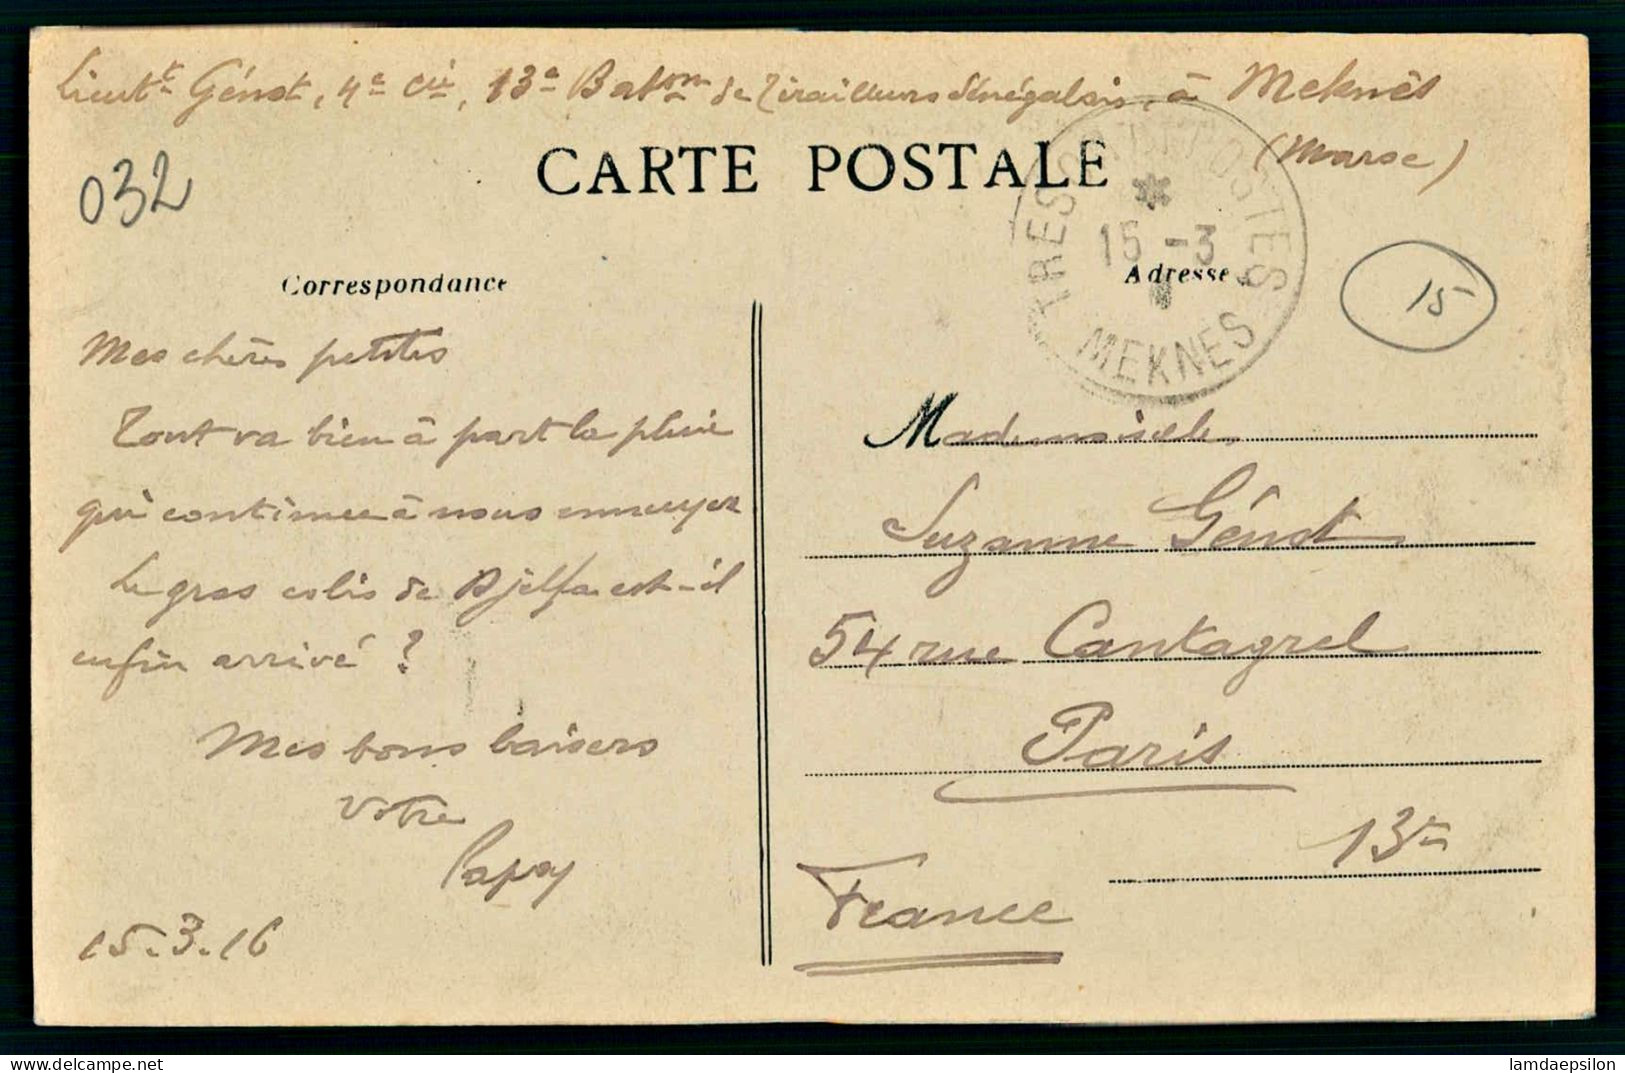 Lieutt Génot, 4e Cie, 13e Batonm de Tirailleurs Sénégalais, à Meknès
(Maroc)
032
CARTE POSTALE
TRESOR ET POSTES
*
15 -3
MEKNES
15
Correspondance
Adresse
Mes chères petites
Tout va bien à part la pluie
qui continue à nous ennuyer
Le gros colis de Djelfa est-il
enfin arrivé ?
Mes bons baisers
Votre
Papa
15.3.16
Mademoiselle
Suzanne Génot
54 rue Cantagrel
Paris
13e
France
delcampe.net
lamdaepsilon